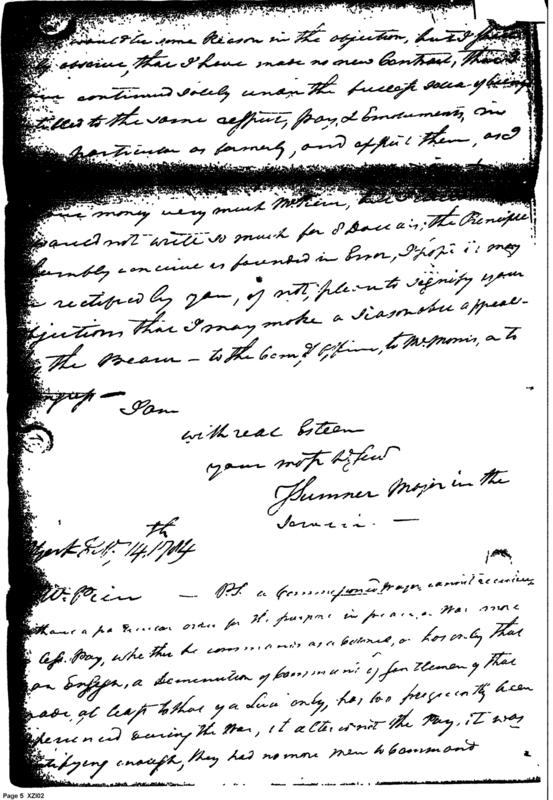 would be some Reason in the objection, but I
observe, that I have made no new Contract, that I
continued solely upon the
titled to the same respect, Pay, & Emoluments, in
particular as formerly, and expect them, as I
money very much
would not write so much for 8 Dollars, the Principle
humbly conceive is founded in Error, I hope it may
rectified by you, if not, please to signify your
objections that I may make a reasonable appeal
the Bearer — to the Comdg Officer, to Mr. Morris, or to
Congress —
I am
with real Esteem
your most
J Sumner Major in the
Service —
York 14th 1784
Mr. Pierce — PS. a Commissioned Major cannot receive
than a particular order for the purpose in peace, or War more
less Pay, whether he commands as a Colonel, or has only that
an Ensign, a Diminution of Command of Gentlemen of that
at least to that of a only, has too frequently been
experienced during the War, it alters not the Pay, it was
enough, they had no more Men to Command
Page 5 XZI02